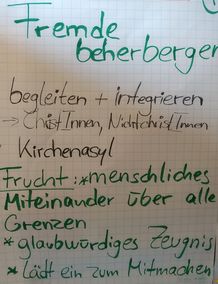 Fremde
beherbergen
begleiten + integrieren
→ ChristInnen, NichtchristInnen
Kirchenasyl
Frucht: *menschliches
Miteinander über alle
Grenzen
* glaubwürdiges Zeugnis
* lädt ein zum Mitmachen